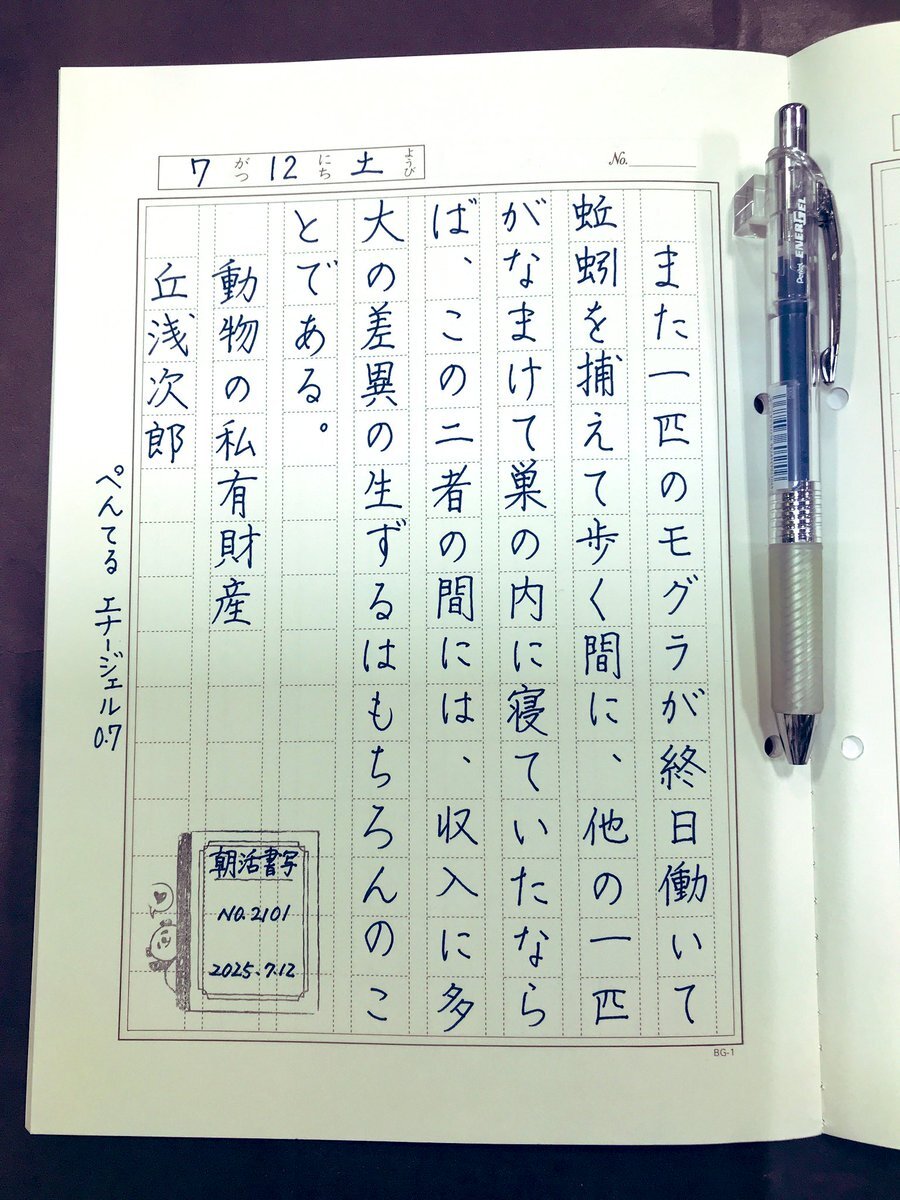 7がつ12にち土ようび
No.
また一匹のモグラが終日働いて
蚯蚓を捕えて歩く間に、他の一匹
がなまけて巣の内に寝ていたなら
ば、この二者の間には、収入に多
大の差異の生ずるはもちろんのこ
とである。
動物の私有財産
丘浅次郎
ぺんてる エナージェル 0.7
朝活書写
NO.2101
2025.7.12
BG-1
Pentel ENERGEL